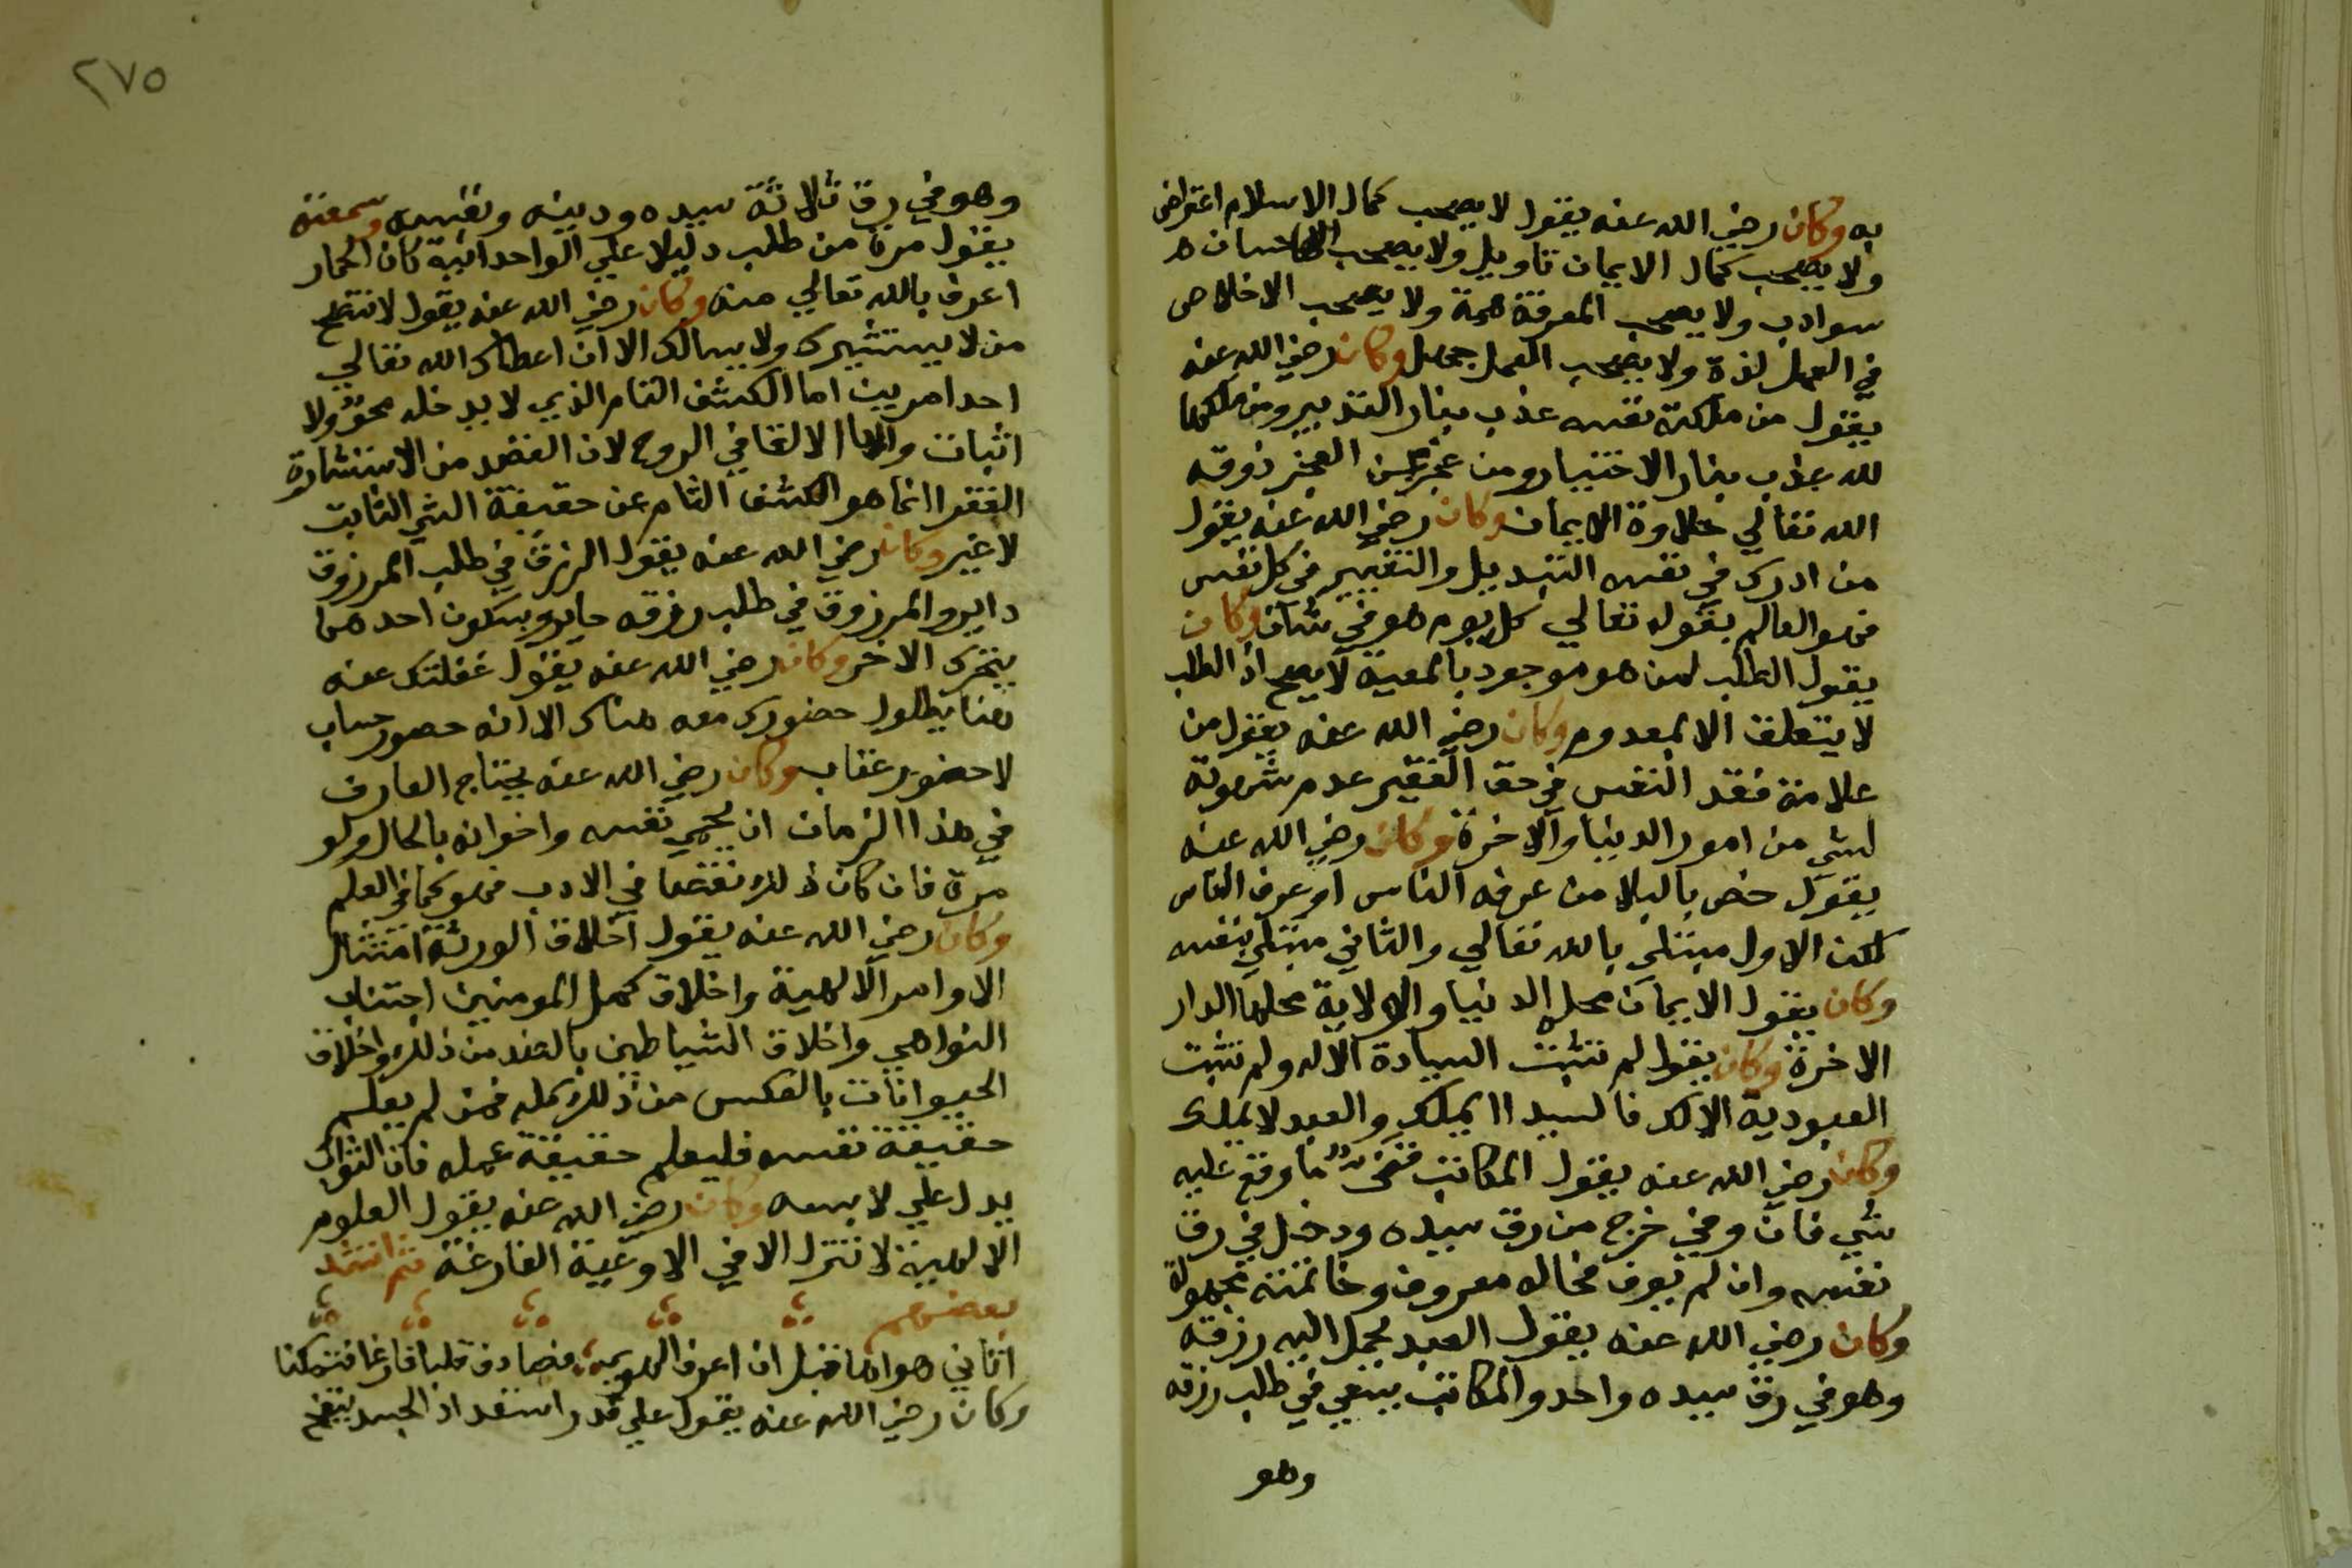 به وكان رضي الله عنه يقول لا يصحب كمال الاسلام اعتراض
ولا يصحب كمال الايمان تاويل ولا يصحب الاحسان
سوادب ولا يصحب المعرفة همة ولا يصحب الاخلاص
في العمل لذة ولا يصحب العمل جهل وكان رضي الله عنه
يقول من ملكته نفسه عذب بنار التدبير ومن ملكها
لله عذب بنار الاختيار ومن عجز عن العجز ذوقه
الله تعالي حلاوة الايمان وكان رضي الله عنه يقول
من ادرك في نفسه التبديل والتغيير في كل نفس
فهو العالم بقوله تعالي كل يوم هو في شان وكان
يقول الطلب لمن هو موجود بالمعية لا يصح اذ الطلب
لا يتعلق الا بمعدوم وكان رضي الله عنه يقول من
علامة فقد النفس في حق الفقير عدم شهوته
لشي من امور الدنيا والاخرة وكان رضي الله عنه
يقول خص بالبلا من عرفه الناس او عرف الناس
لكن الاول مبتلي بالله تعالي والثاني مبتلي بنفسه
وكان يقول الايمان محله الدنيا والولاية محلها الدار
الاخرة وكان يقول لم تثبت السيادة الا له ولم تثبت
العبودية الا لك فالسيد لا يملك والعبد لا يملك
وكان رضي الله عنه يقول المكاتب قن ما وقع عليه
شي فان وفي خرج من رق سيده ودخل في رق
نفسه وان لم يوف فحاله معروف وخاتمته مجهولة
وكان رضي الله عنه يقول العبد يحمل اليه رزقه
وهو في رق سيده واحد والمكاتب يسعي في طلب رزقه
وهو
٢٧٥
وهو في رق ثلاثة سيده ودينه ونفسه وسمعته
يقول مرة من طلب دليلا علي الواحدانية كان الحمار
اعرف بالله تعالي منه وكان رضي الله عنه يقول لا تنصح
من لا يستشيرك ولا يسالك الا ان اعطاك الله تعالي
احد امرين اما الكشف التام الذي لا يدخله محو ولا
اثبات واما الالقا في الروح لان القصد من الاستشارة
الفقرا انما هو الكشف التام عن حقيقة الشي الثابت
لا غير وكان رضي الله عنه يقول الرزق في طلب المرزوق
داير والمرزوق في طلب رزقه حاير وبسكون احدهما
يتحرك الاخر وكان رضي الله عنه يقول غفلتك عنه
هنا بطول حضورك معه هناك الا انه حضور حساب
لا حضور عتاب وكان رضي الله عنه يحتاج العارف
في هذا الزمان ان يحمي نفسه واخوانه بالحال ولو
مرة فان كان ذلك نقصا في الادب فهو كمال في العلم
وكان رضي الله عنه يقول اخلاق الورثة امتثال
الاوامر الالهية واخلاق كمل المومنين اجتناب
النواهي واخلاق الشياطين بالضد من ذلك واخلاق
الحيوانات بالعكس من ذلك كله فمن لم يعلم
حقيقة نفسه فليعلم حقيقة عمله فان الثواب
يدل علي لابسه وكان رضي الله عنه يقول العلوم
الالهية لا تنزل الا في الاوعية الفارغة ثم انشد
بعضهم
اتاني هواها قبل ان اعرف الهوي فصادف قلبا فارغا فتمكنا
وكان رضي الله عنه يقول علي قدر استعداد الجسد ينفخ